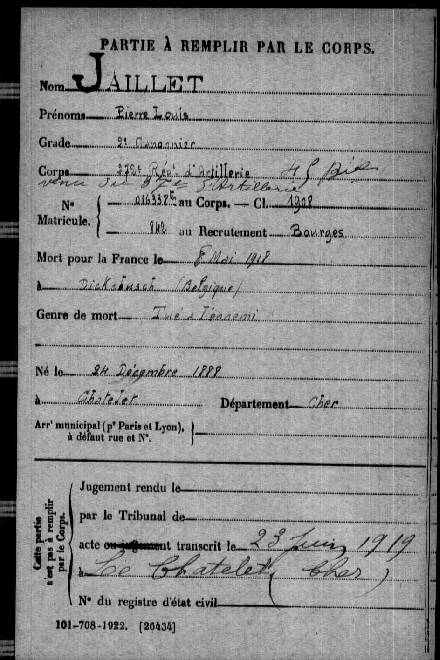 PARTIE À REMPLIR PAR LE CORPS.
Nom JAILLET
Prénoms Pierre Louis
Grade 2e Canonnier
Corps 272e Régt d'Artillerie
venu du 37e d'Artillerie
N° 016337c au Corps. — Cl. 1908
Matricule. 842 au Recrutement Bourges
Mort pour la France le 8 Mai 1918
à Dickebusch (Belgique)
Genre de mort Tué à l'ennemi
Né le 24 Décembre 1888
à Chatelet Département Cher
Arrt municipal (pr Paris et Lyon),
à défaut rue et N°.
Cette partie
n'est pas à remplir
par le Corps.
Jugement rendu le
par le Tribunal de
acte ou jugement transcrit le 23 Juin 1919
à Le Chatelet (Cher)
N° du registre d'état civil
101-708-1922. [26434]